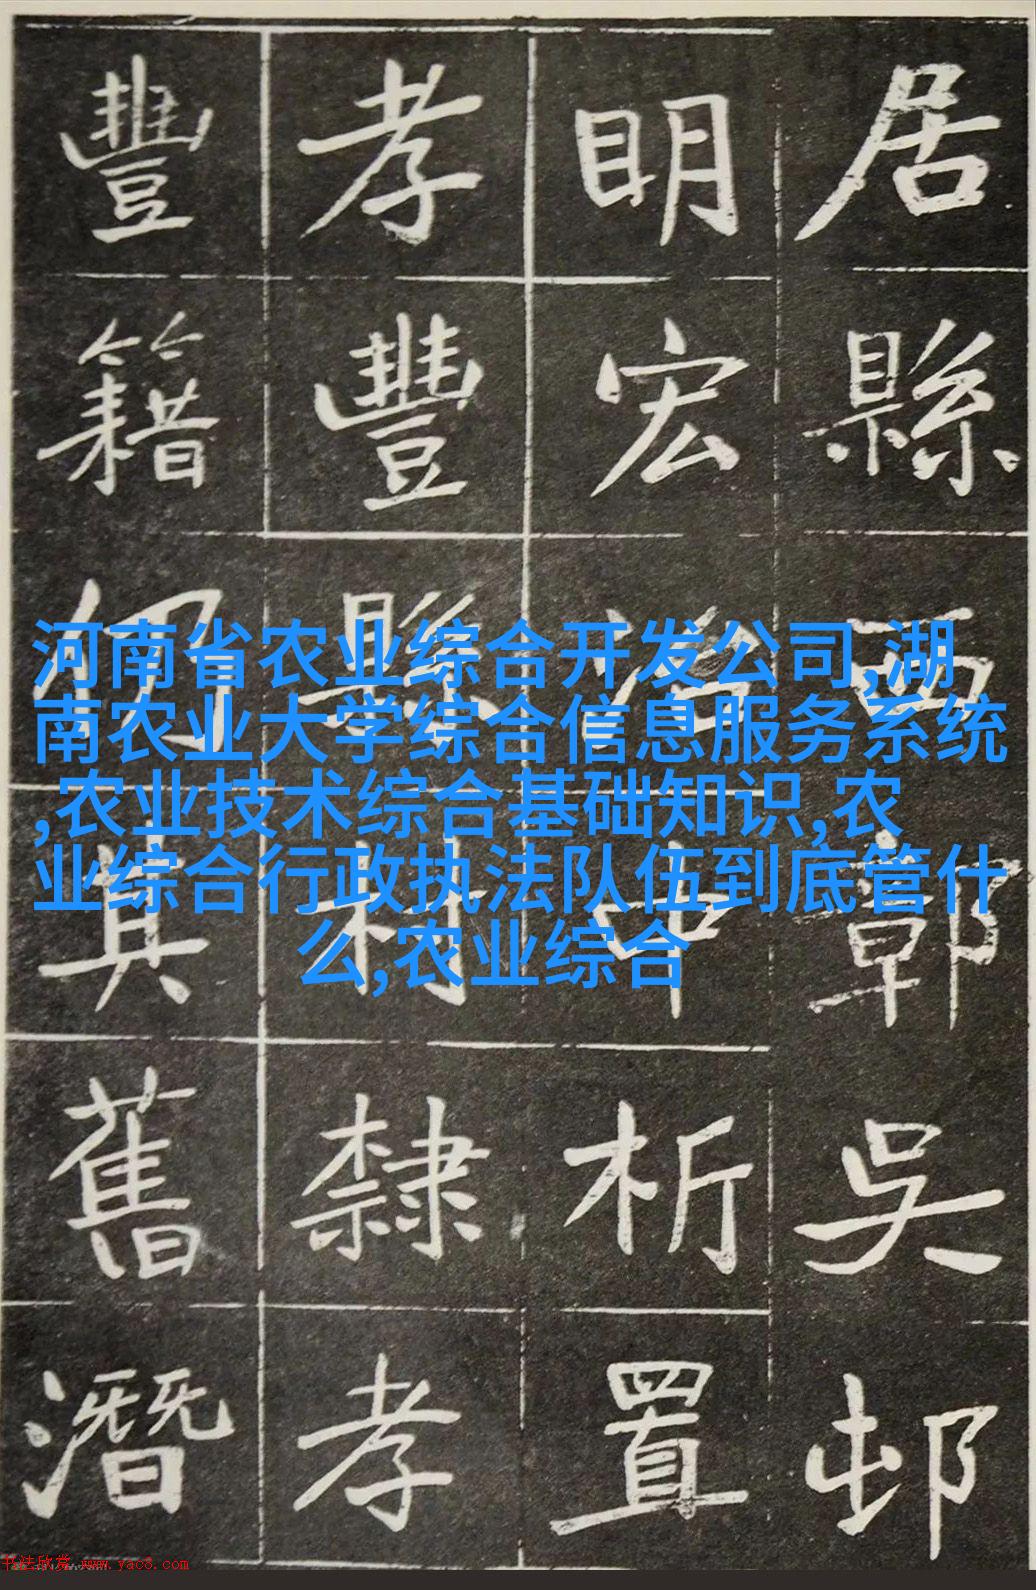 居縣西鄣吳邨
明宏治中析置
孝豐縣村隸孝
豐籍仍其舊潛
河南省农业综合开发公司,湖
南农业大学综合信息服务系统
,农业技术综合基础知识,农
业综合行政执法队伍到底管什
么,农业综合
书法欣赏 www.yac8.com